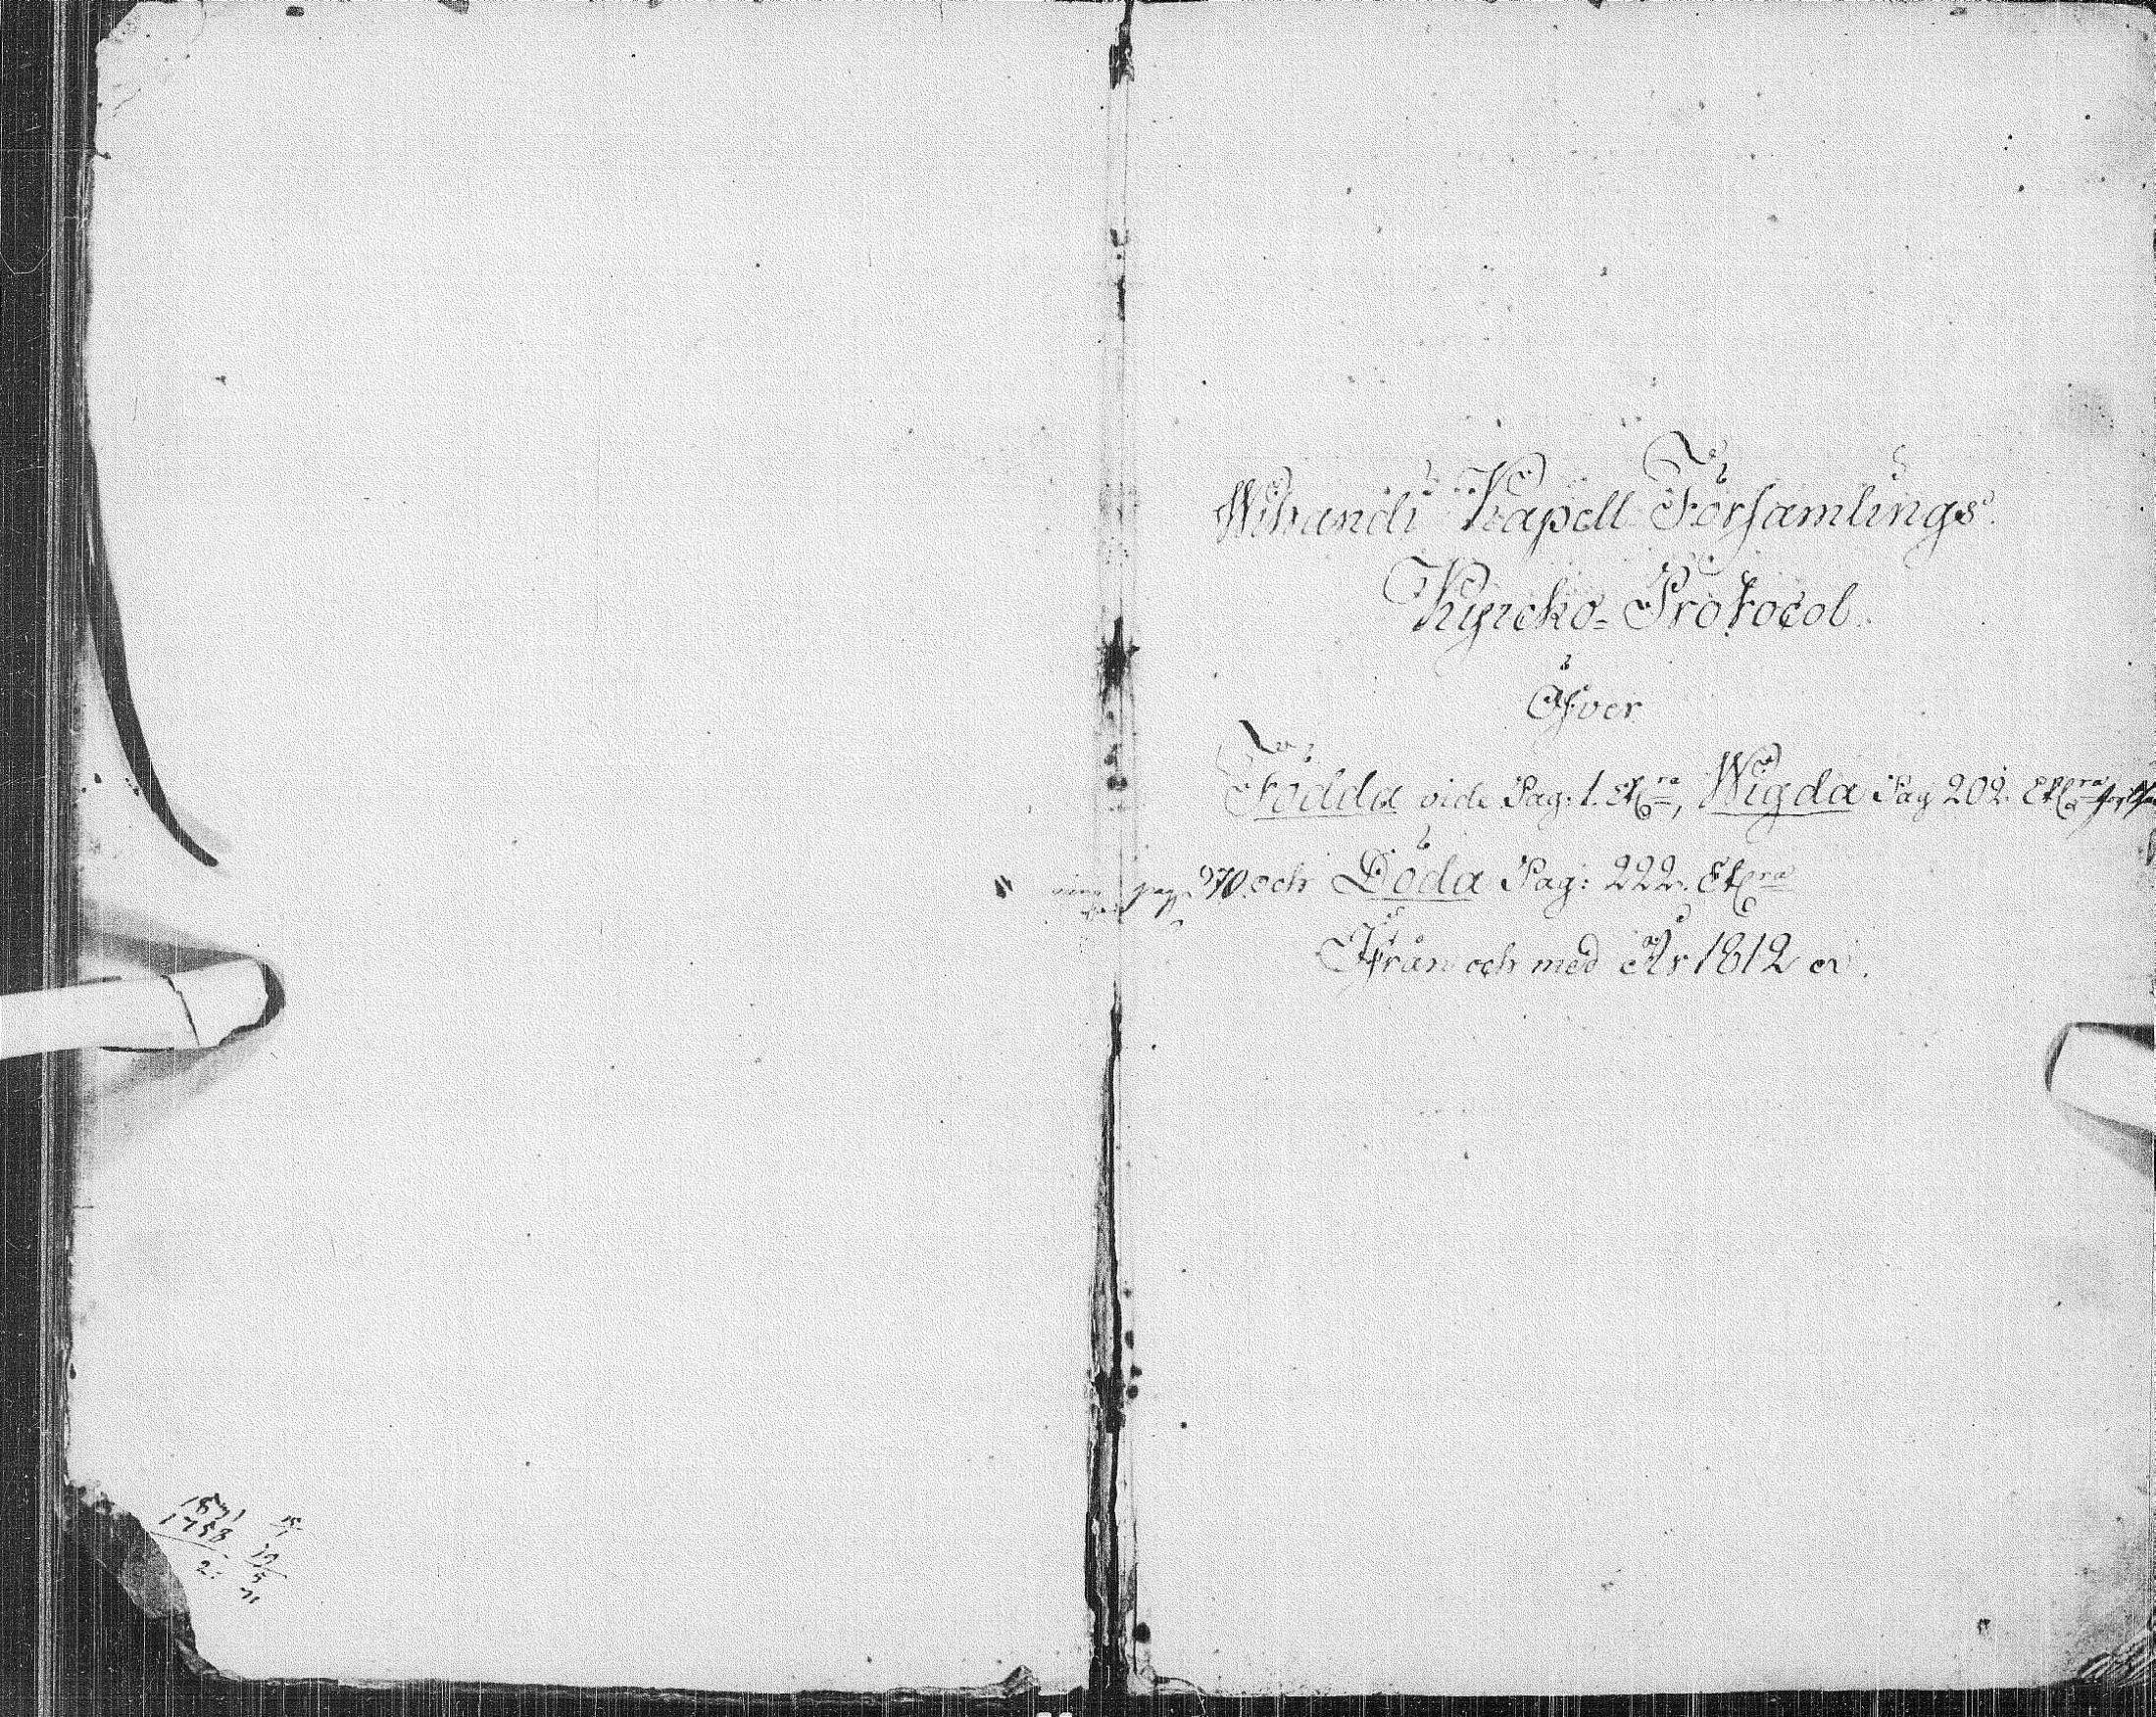 Wihandi Kapell Församlings
Kyrcko-Protocol
Öfver
Födda vide Pag: 1. Etc:ra, Wigda Pag 202. Etc:ra
pag 970 och Döda Pag: 222. Etc:ra
Ifrån och med År 1812
1871
1758